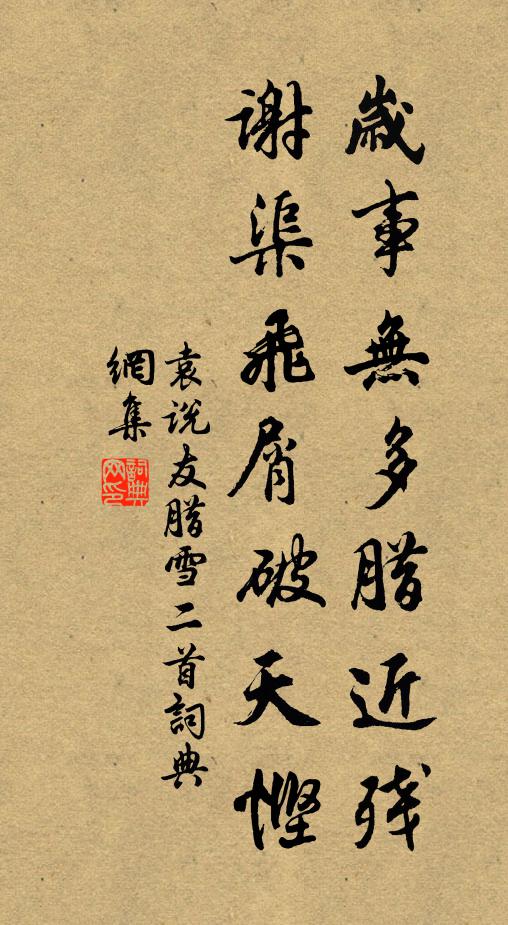 歲事無多腊近殘
謝渠飛屑破天慳
袁說友腊雪二首詞典
網集
詞典網印